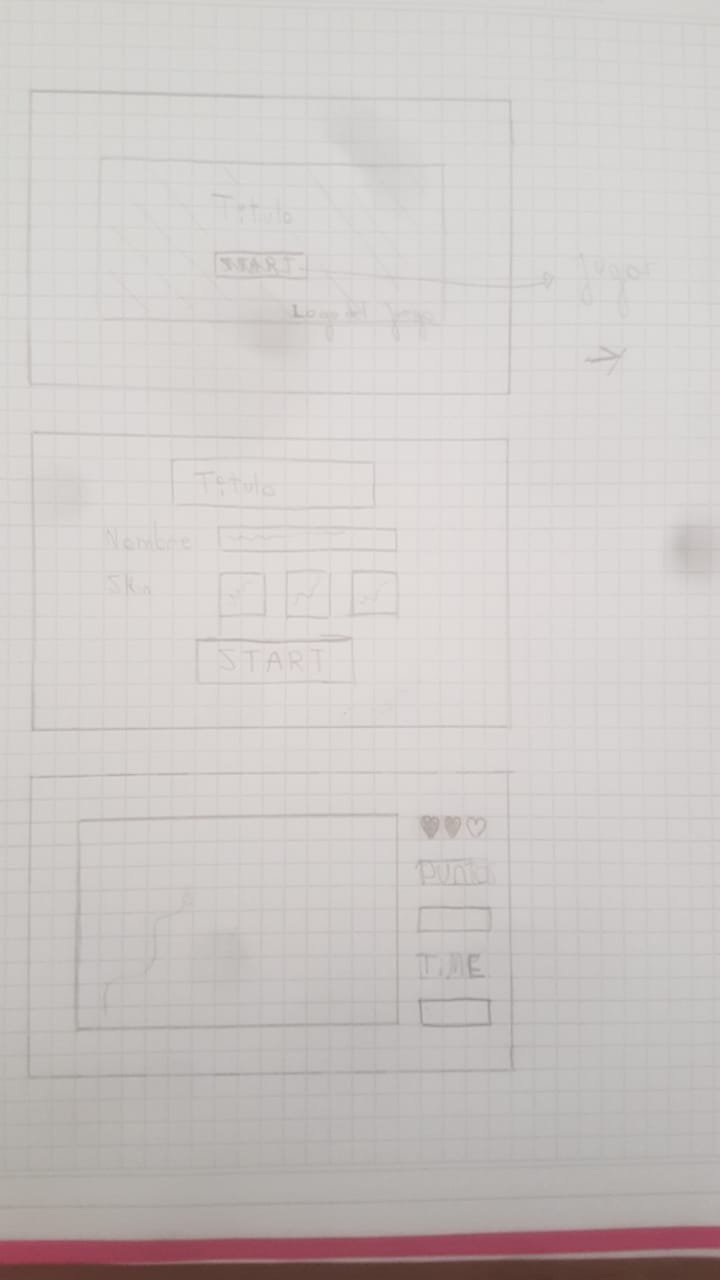 Titulo
START
Logo del juego
jugar
Titulo
Nombre
Skin
START
Puntos
TIME